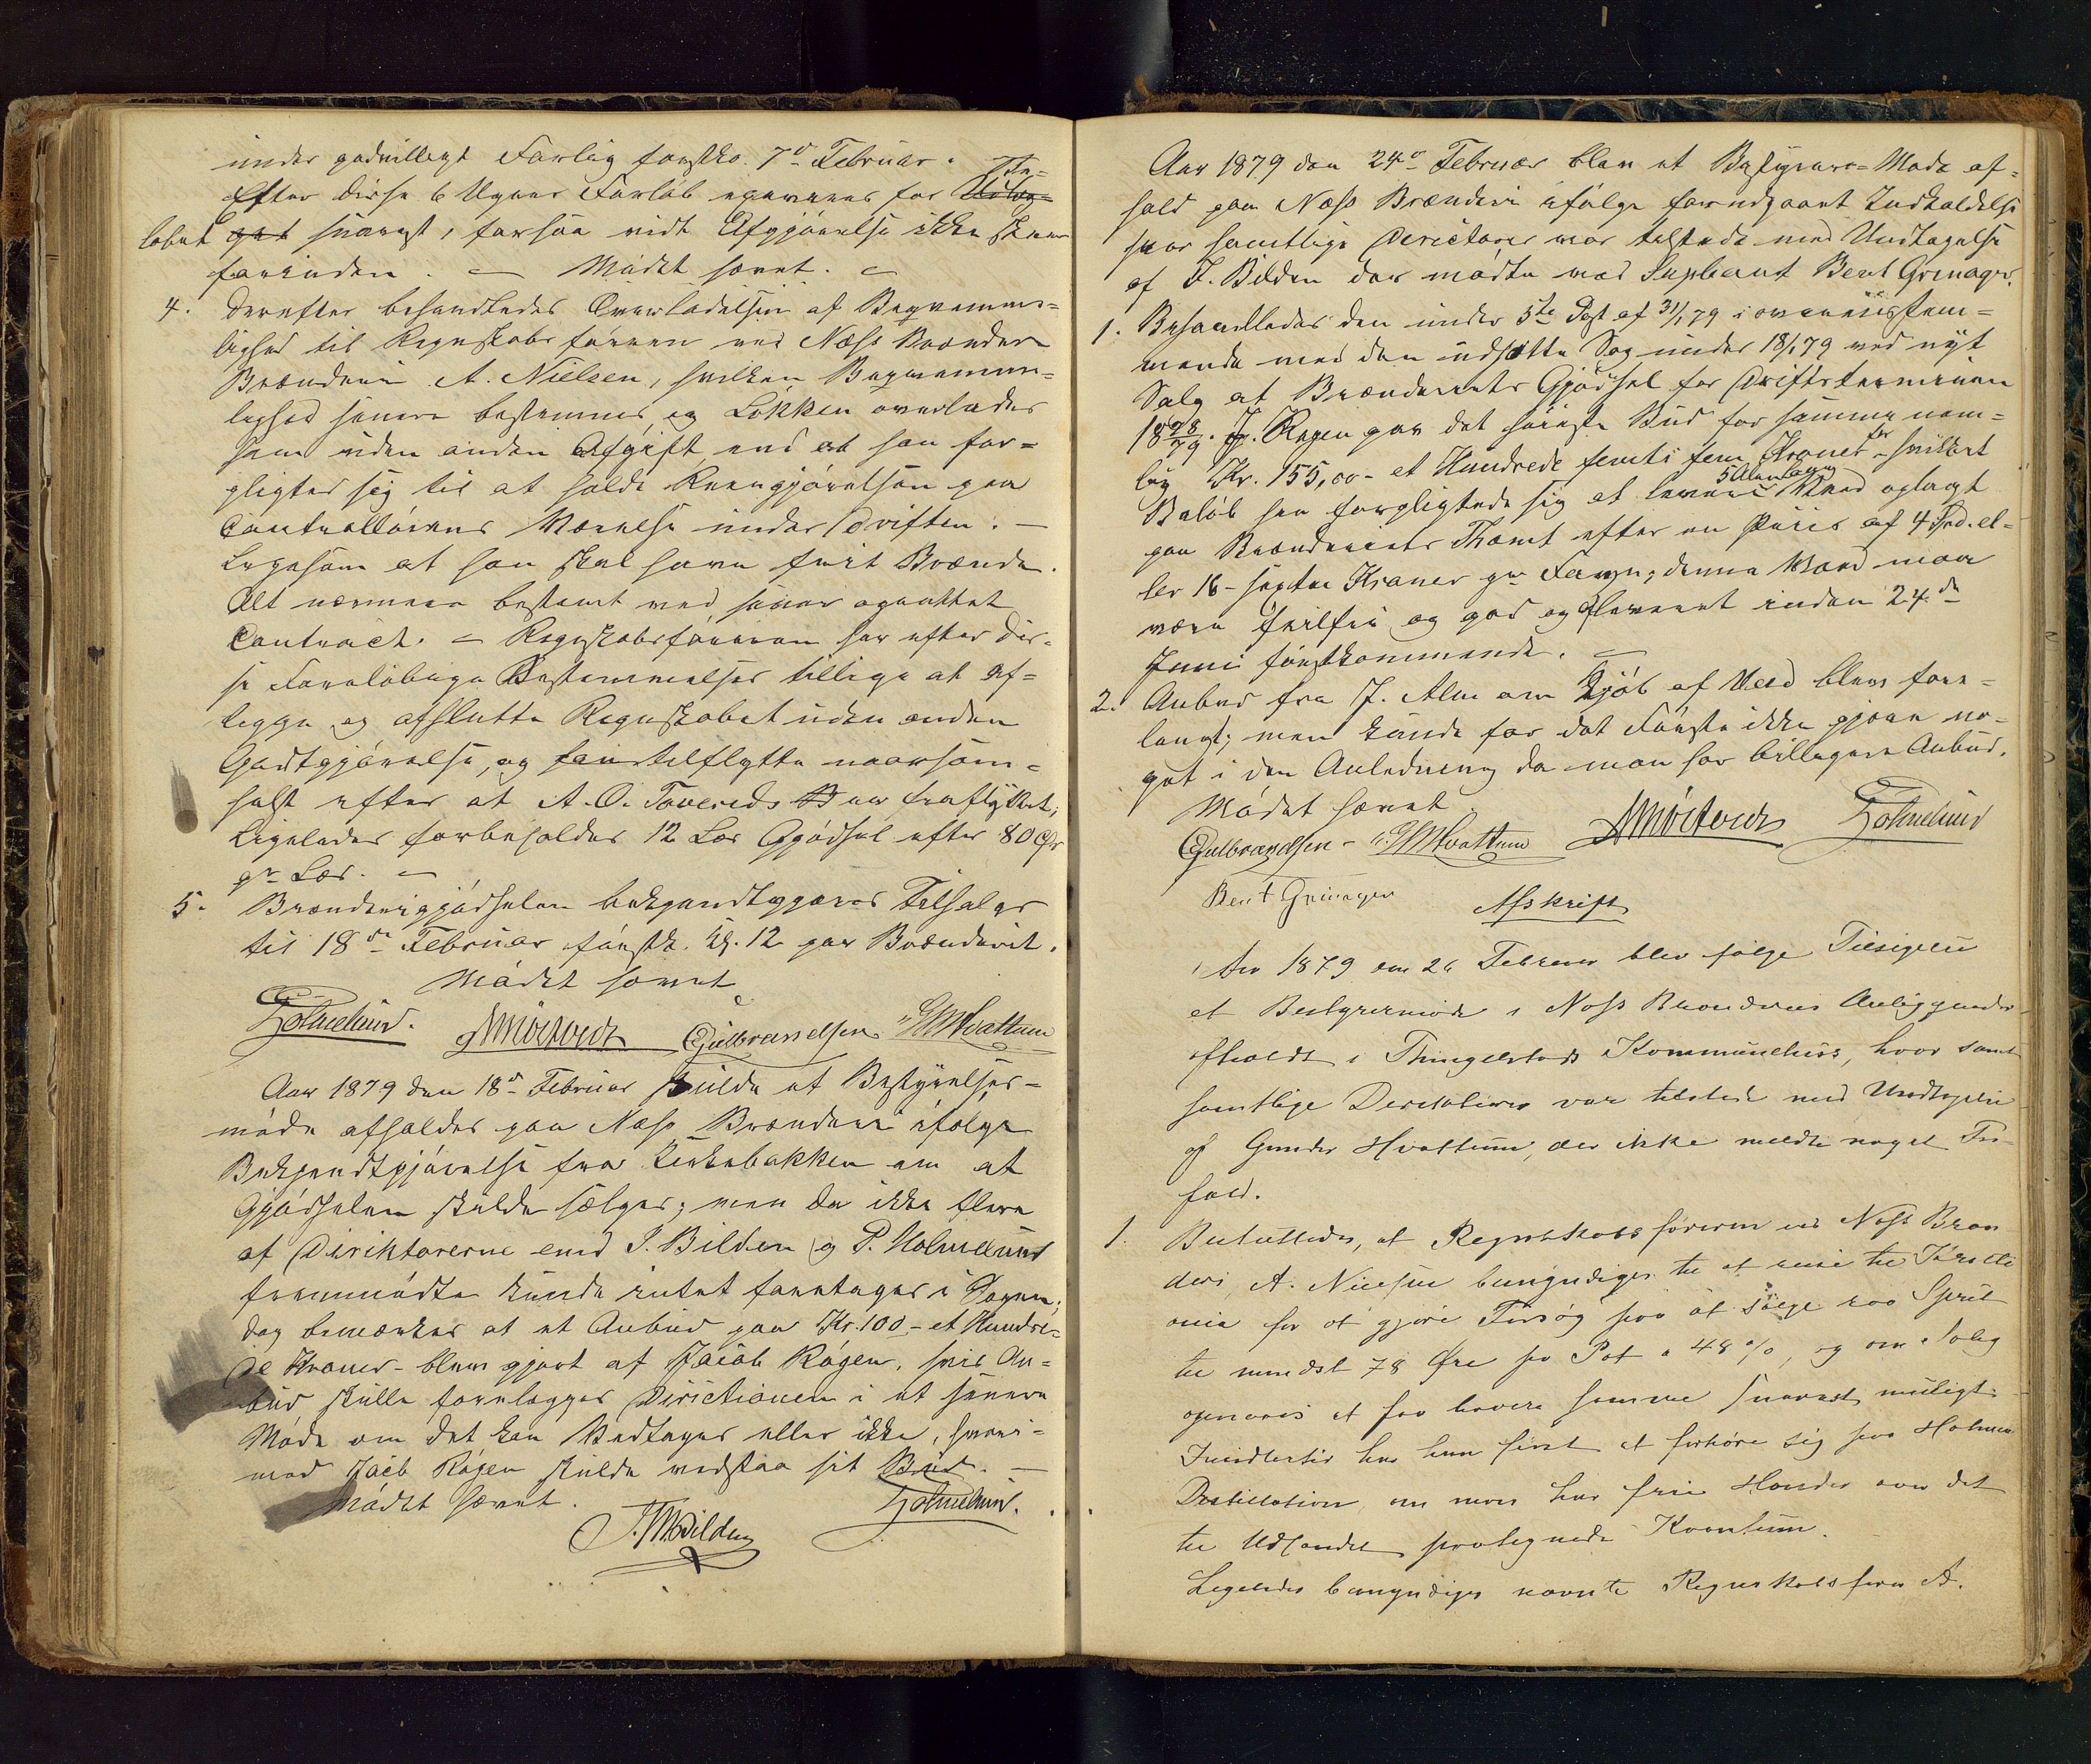 under godvilligt Forlig førstko. 7de Februar.
Efter disse 6 Ugers Forløb
løbet snarest, forsaavidt Afgjørelse ikke
forinden. — Mødet hævet. —
4. Derefter behandledes Overladelsen af Beqvemme-
lighed til Regnskabsføreren ved Næss
Brænderi A. Nielsen, hvilken Beqvemme-
lighed senere bestemmes, og Løkken overlades
ham uden anden Afgift end at han for-
pligter sig til at holde Reengjørelsen paa
Controllørens Værelse under Driften. —
Ligesom at han skal have frit Brænde.
Alt nærmere bestemt ved senere oprettet
Contract. — Regnskabsføreren har efter dis-
se Foreløbige Bestemmelser tillige at af-
legge og afslutte Regnskabet uden anden
Godtgjørelse, og kan tilflytte naarsom-
helst efter at A. O. Tovereds er fraflyttet;
Ligeledes forbeholdes 12 Læs Gjødsel efter 80 Ør
pr Læs. —
5. Brænderigjødselen bekjendtgjøres Tilsalgs
til 18de Februar førstk. Kl. 12 paa Brænderiet.
Mødet hævet
P Holmelund. A Mortveds Gulbrandsen G M Hvattum
Aar 1879 den 18de Februar skulde et Bestyrelses-
møde afholdes paa Næss Brænderi ifølge
Bekjendtgjørelse fra Kirkebakken om at
Gjødselen skulde sælges; men da ikke flere
af Direktørerne end J. Bilden og P. Holmelund
fremmødte kunde intet foretages i Sagen,
dog bemærkes at et Anbud paa Kr. 100 - et Hundre-
de Kroner - blev gjort af Jacob Røgen, hvis An-
bud skulle forelegges Directionen i et senere
Møde om det kan Vedtages eller ikke, hvori-
mod Jacb Røgen skulde vedstaa sit Bud. —
Mødet hævet.
J. M Bilden P Holmelund.
Aar 1879 den 24de Februar blev et Bestyrere-Møde af-
holdt paa Næss Brænderi ifølge forudgaaet Indkaldelse
hvor samtlige Directører var tilstede med Undtagelse
af J. Bilden der mødte ved Supleant Bent Grinager.
1. Behandledes den under 5te Post af 31/1 79 i overensstem-
mende med den udsatte Sag under 18/2 79 ved nyt
Salg af Brænderiets Gjødsel for Driftsterminen
1878/79. J. Røgen gav det høieste Bud for samme nem-
lig Kr. 155,00 - et Hundrede femti fem Kroner - for hvilket
Beløb han forpligtede sig at levere 5 Alen lang Ved oplagt
paa Brænderiets Tomt efter en Priis af 4 Spd. el-
ler 16 - sexten Kroner pr Favn; denne Ved maa
være feilfri og god og leveret inden 24de
Juni førstkommende. —
2. Anbud fra J. Alm om Kjøb af Ved blev fore-
lagt; men kunde for det Første ikke gjøre no-
get i den Anledning da man har billigere Anbud.
Mødet hævet.
Gulbrandsen - G M Hvattum A Mortveds P Holmelund
Bent Grinager
Afskrift
Aar 1879 den 26 Februar blev følge Tilsigelse
et Bestyrermøde i Næss Brænderis Anliggender
afholdt i Thingelstads Kommunehus, hvor samt
samtlige Direktører var tilstede med Undtagelse
af Gunder Hvattum, der ikke meldte noget For-
fald.
1. Besluttedes, at Regnskabsføreren ved Næss Bræn
deri, A. Nielsen bemyndiges til at reise til Kristi
ania for at gjøre Forsøg paa at sælge raa Sprit
til mindst 78 Øre pr Pot a 48 %, og om Salg
opnaaes at faa levere samme snarest muligt
Imidlertid har han først at forhøre sig paa Holmen
Destillation, om man har frie Hænder over det
til Udlandet paategnede Kvantum.
Ligeledes bemyndiges nævnte Regnskabsfører A.